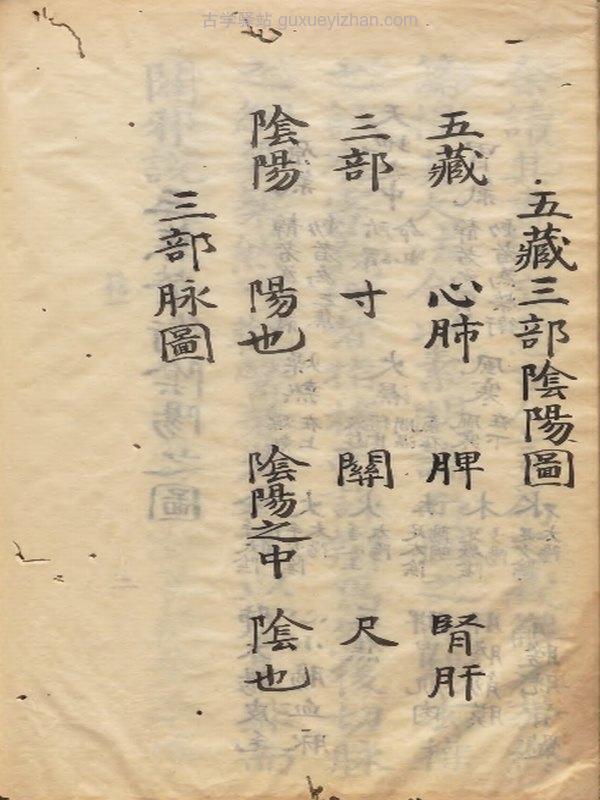 古学驿站 guxueyizhan.com
五藏三部陰陽圖
五藏 心肺 脾 腎肝
三部 寸 關 尺
陰陽 陽也 陰陽之中 陰也
三部脉圖